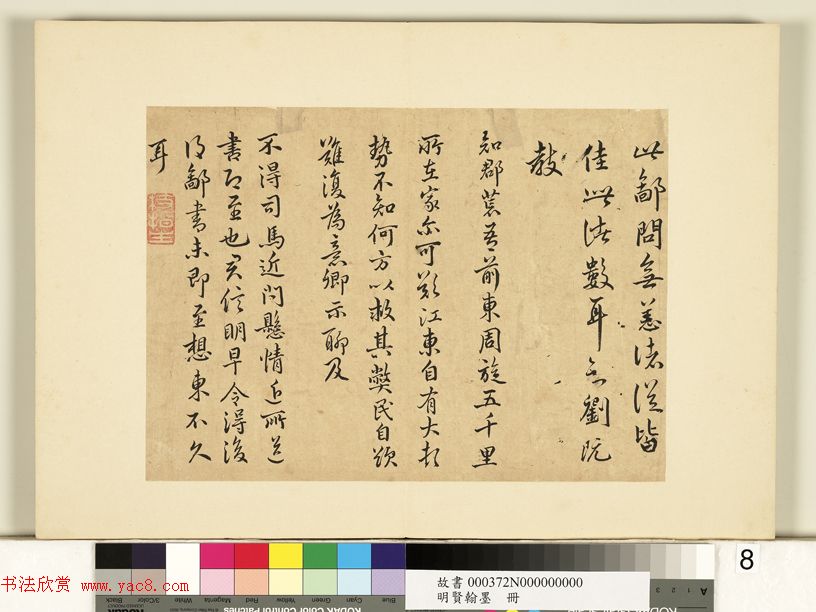 此鄙問無恙諸從皆
佳此法數耳知劉阮
敖
知郡荒吾前東周旋五千里
所在家尔可歎江東自有大
勢不知何方以救其弊民自欲
難復為意卿示聊及
不得司馬近問懸情近所送
書即至也其信明早令得復
得鄙書未即至想東不久
耳
8
故書 000372N000000000
明賢翰墨 冊
书法欣赏 www.yac8.com
Black
3/Color
White
Magenta
Red
Yellow
Green
Cyan
Blue
KODAK Color Control Patches
A 1 2 3